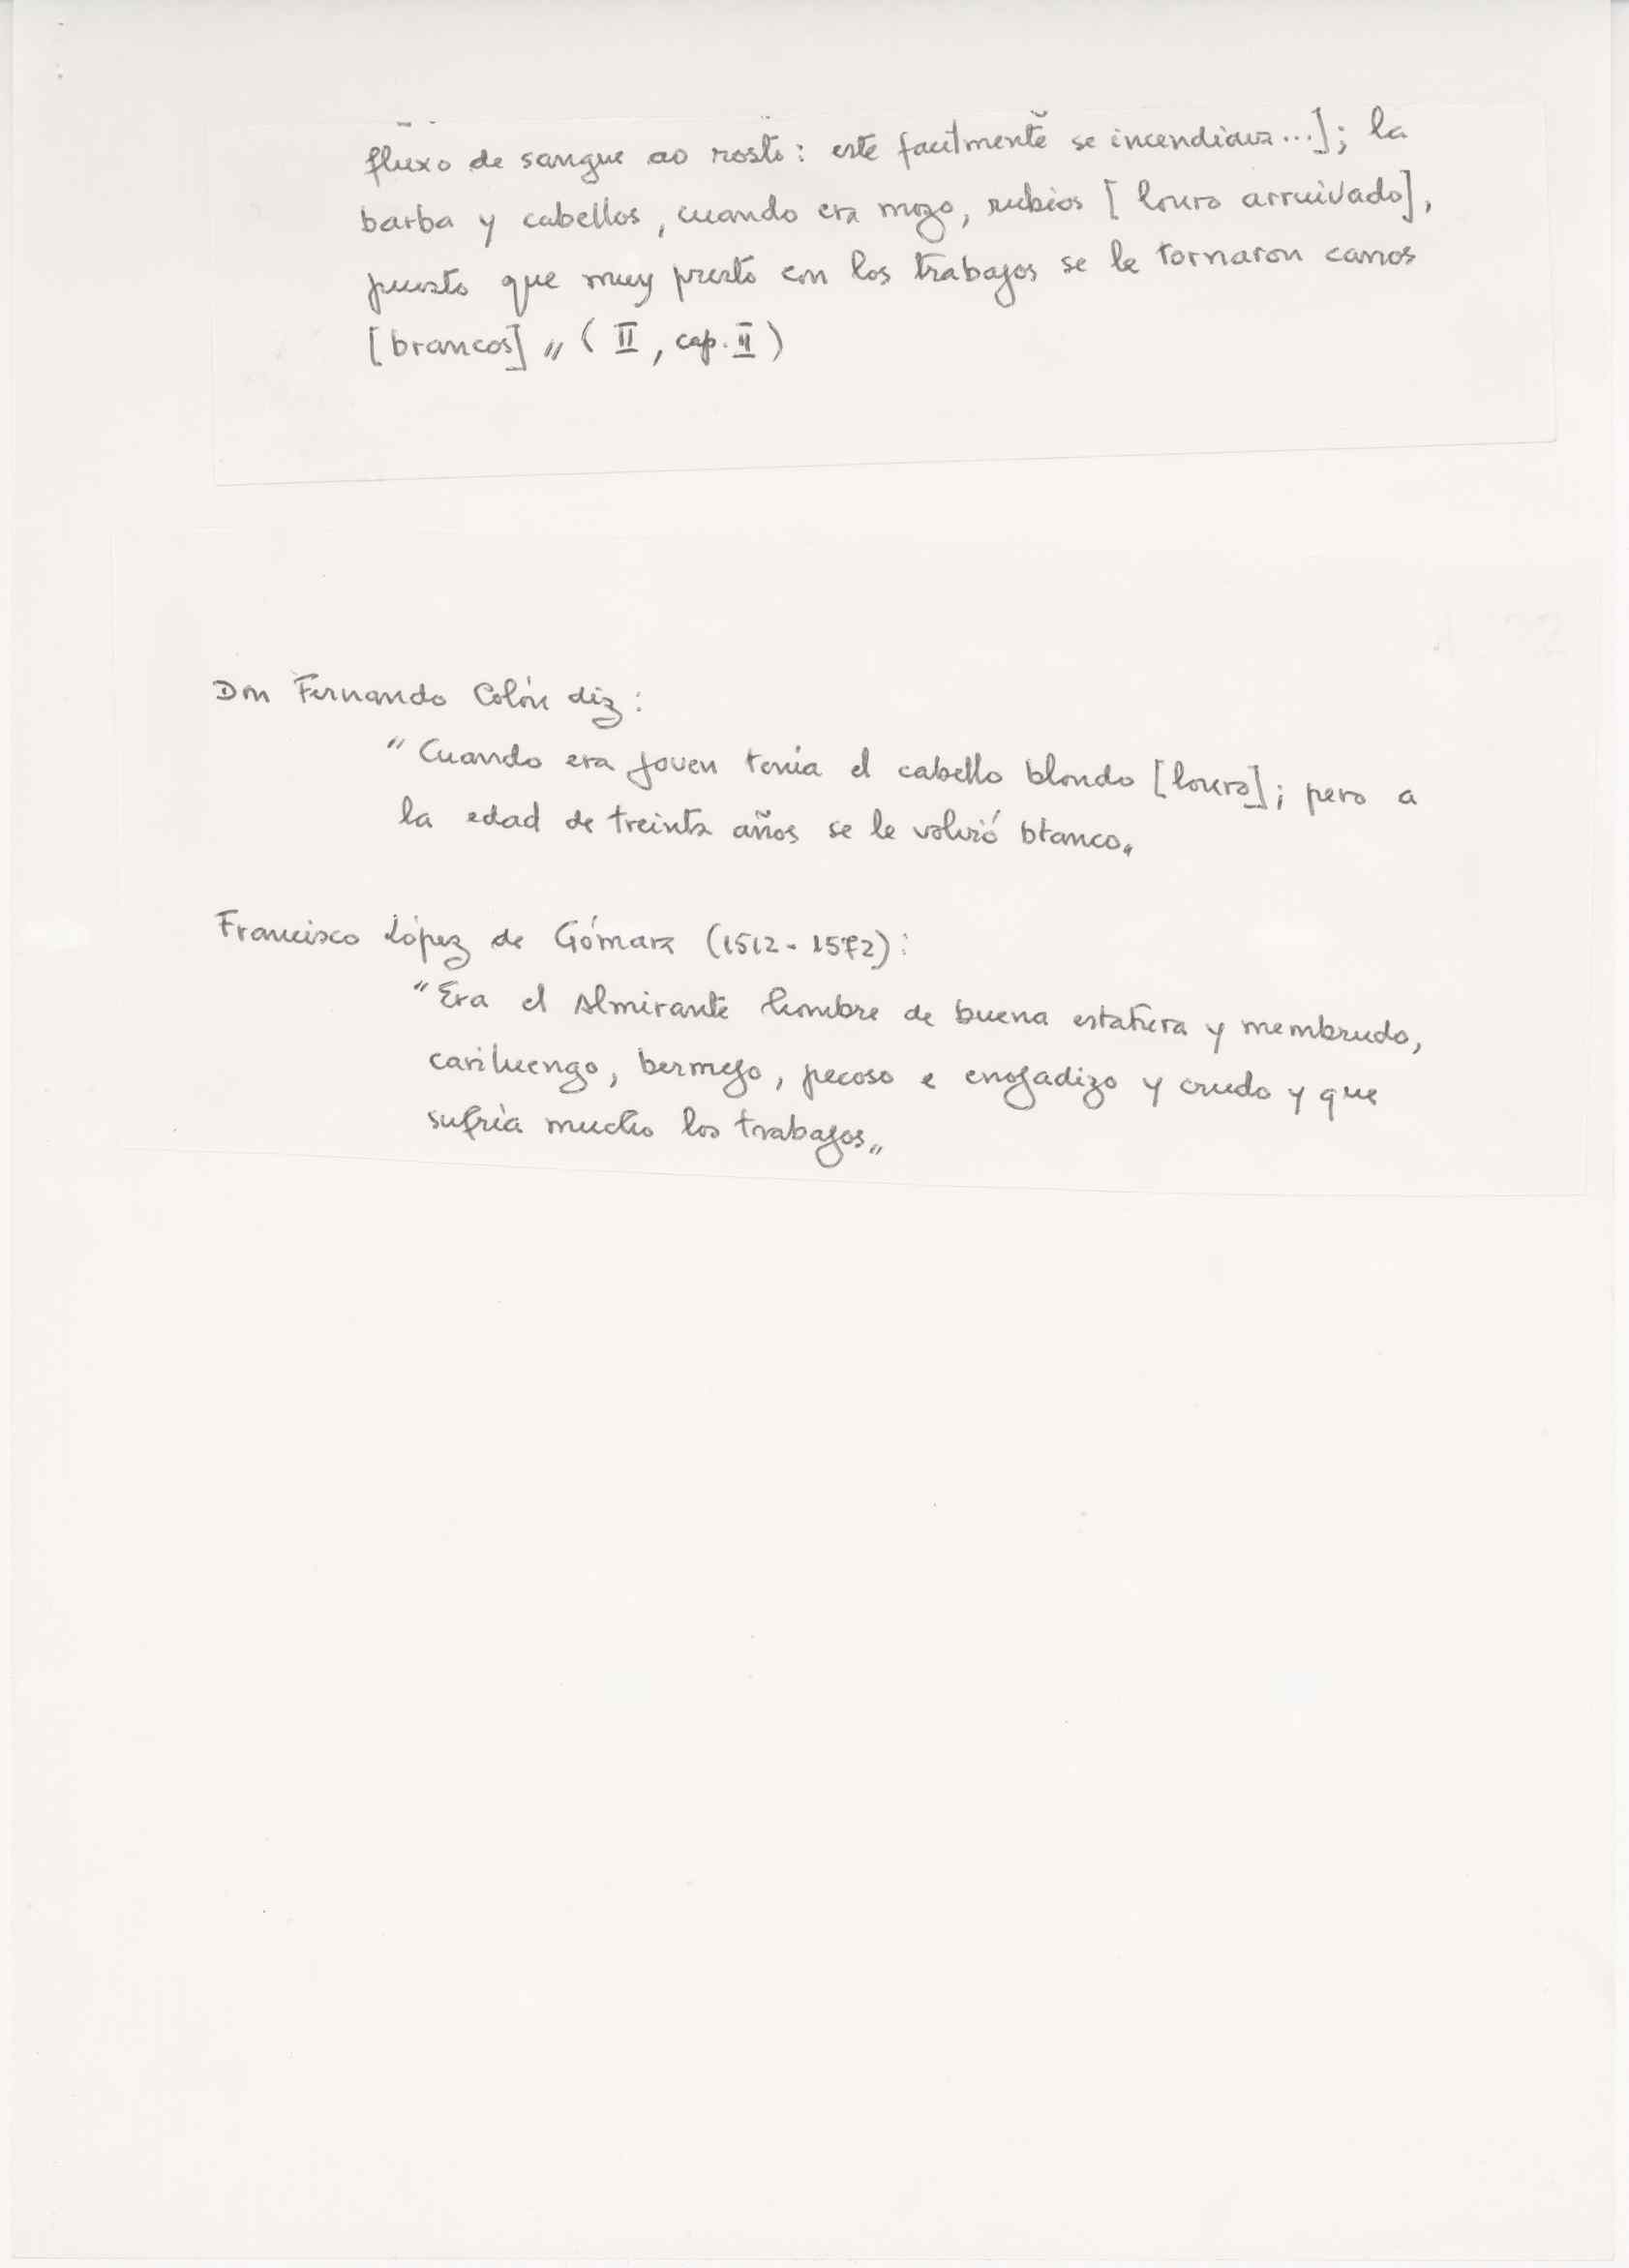 fluxo de sangue ao rosto: este facilmente se incendiava...]; la
barba y cabellos, cuando era mozo, rubios [louro arruivado],
puesto que muy presto con los trabajos se le tornaron canos
[brancos]„ (II, cap. II)
Don Fernando Colón diz:
"Cuando era joven tenia el cabello blondo [louro]; pero a
la edad de treinta años se le volvió blanco„
Francisco López de Gómara (1512-1572):
"Era el Almirante hombre de buena estatura y membrudo,
cariluengo, bermejo, pecoso e enojadizo y crudo y que
sufría mucho los trabajos„